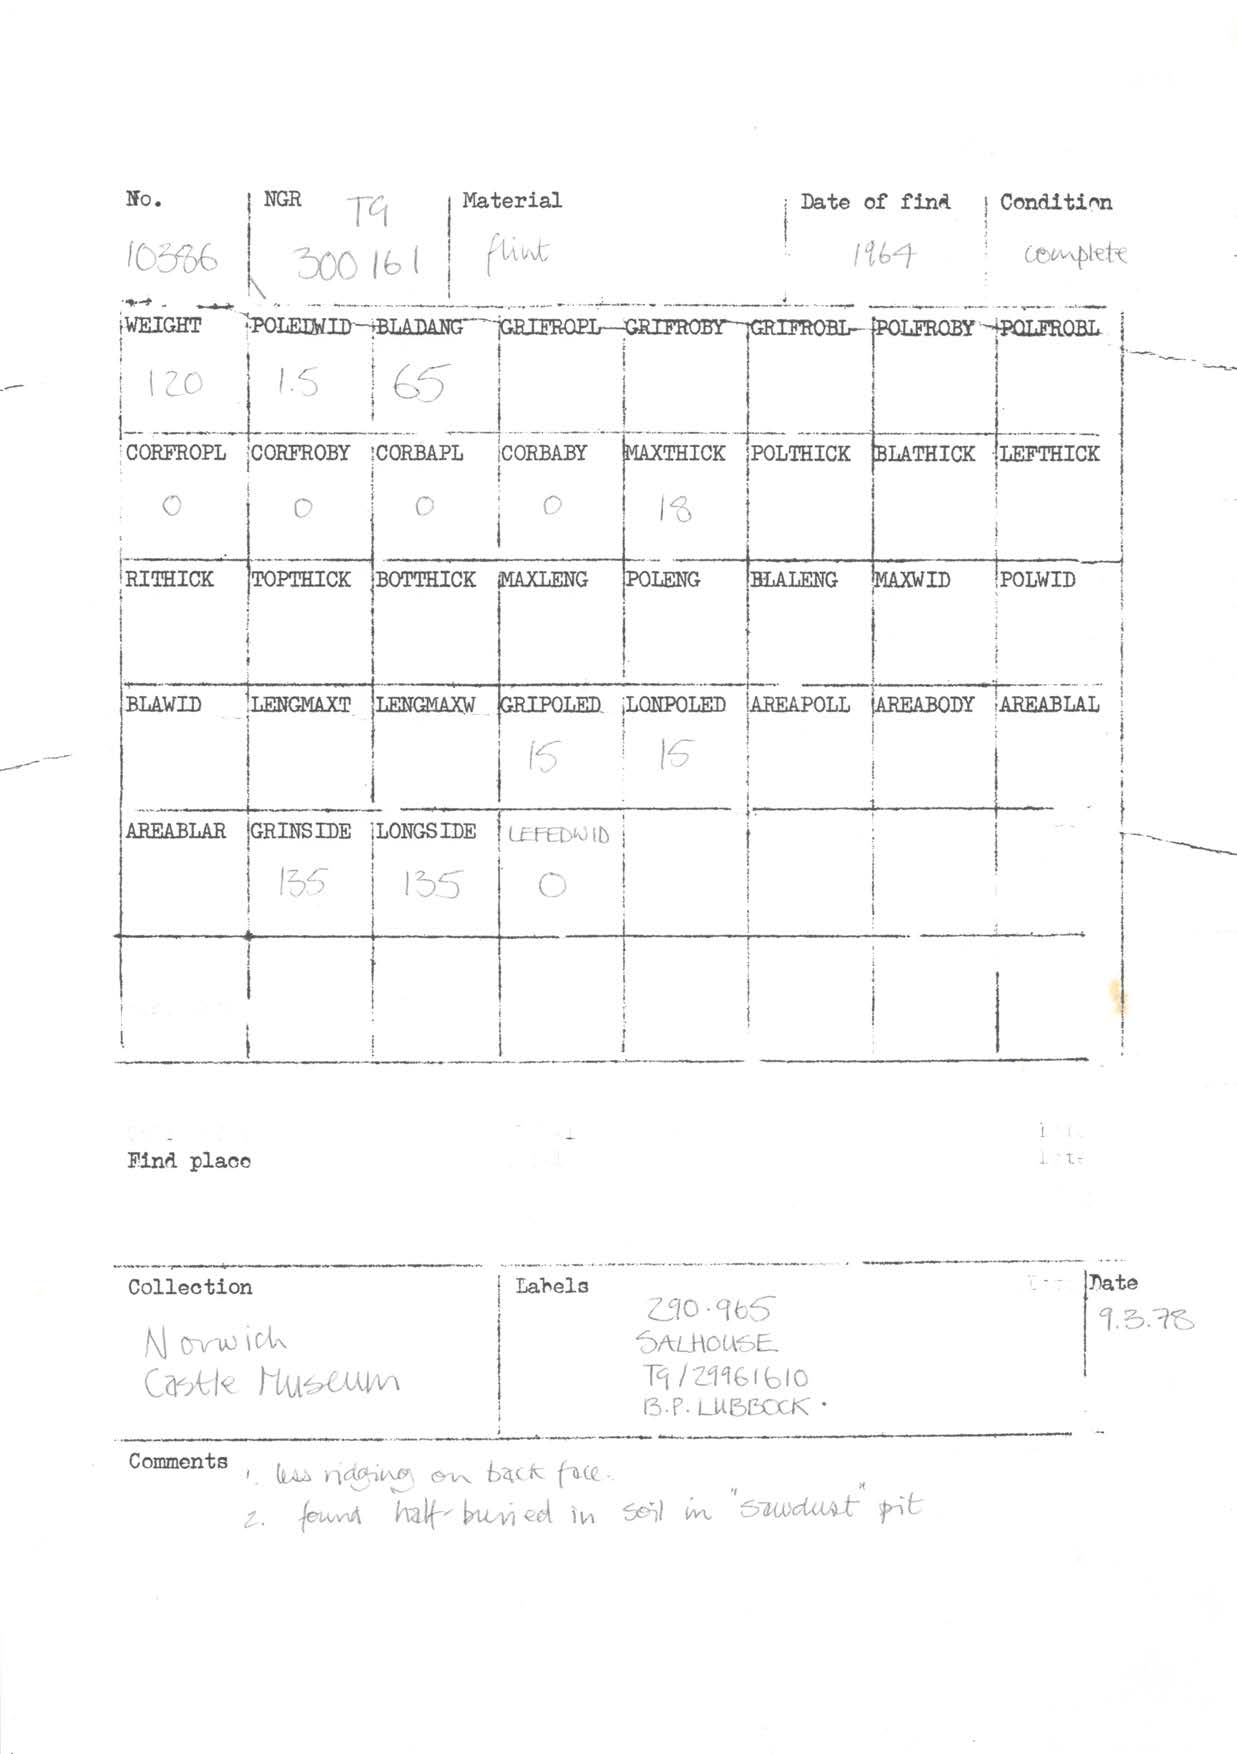 No. NGR TG Material Date of find Condition
10386 300161 flint 1964 complete
WEIGHT POLEDWID BLADANG GRIFROPL GRIFROBY GRIFROBL POLFROBY POLFROBL
120 1.5 65
CORFROPL CORFROBY CORBAPL CORBABY MAXTHICK POLTHICK BLATHICK LEFTHICK
0 0 0 0 18
RITHICK TOPTHICK BOTTHICK MAXLENG POLENG BLALENG MAXWID POLWID
BLAWID LENGMAXT LENGMAXW GRIPOLED LONPOLED AREAPOLL AREABODY AREABLAL
15 15
AREABLAR GRINSIDE LONGSIDE LEFEDWID
135 135 0
Find place
Collection Labels Date
290.965 9.3.78
Norwich SALHOUSE
Castle Museum TG/29961610
B.P. LUBBOCK.
Comments 1. less ridging on back face.
2. found half-buried in soil in "sawdust" pit